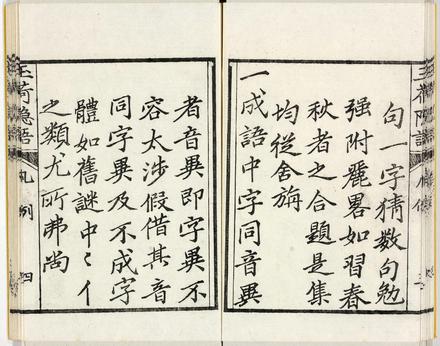 句一字猜數句勉
强附麗畧如習春
秋者之合題是集
均從舍旃
一成語中字同音異
者音異即字異不
容太涉假借其音
同字異及不成字
體如舊謎中〻亻
之類尤所弗尚
玉荷隱語 凡例 四